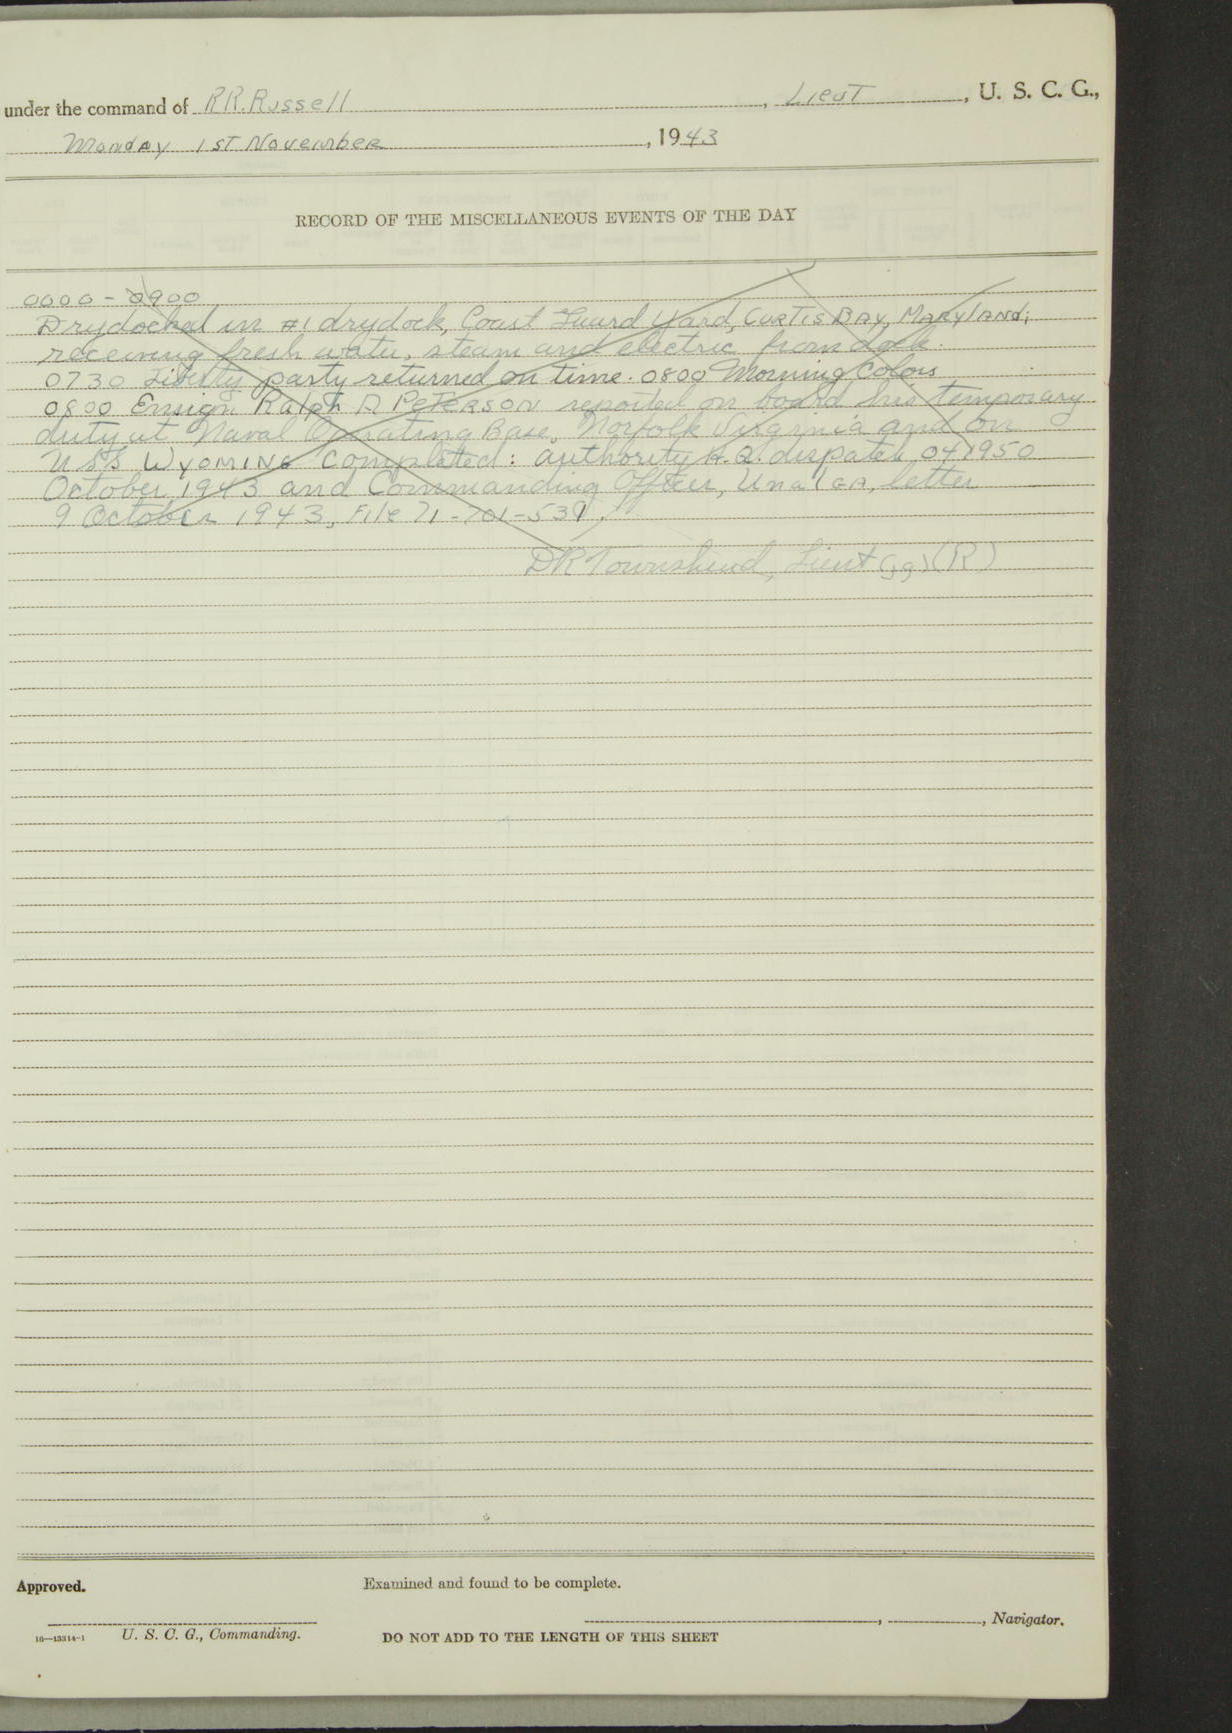 under the command of R.R. Russell, Lieut, U. S. C. G.,
Monday 1st November, 1943
RECORD OF THE MISCELLANEOUS EVENTS OF THE DAY
0000 - 0900
Drydocked in #1 drydock, Coast Guard Yard, CURTIS BAY, MARYLAND;
receiving fresh water, steam and electric from dock.
0730 Liberty party returned on time. 0800 Morning Colors
0800 Ensign Ralph D PETERSON reported on board his temporary
duty at Naval Operating Base, Norfolk Virginia and on
USS WYOMING completed: authority H.Q. dispatch 041950
October, 1943 and Commanding Officer, UnalGA, letter
9 October 1943, File 71-701-539.
DR Townshend, Lieut (jg) (R)
Approved.
Examined and found to be complete.
, , Navigator.
16—13314-1 U. S. C. G., Commanding.
DO NOT ADD TO THE LENGTH OF THIS SHEET